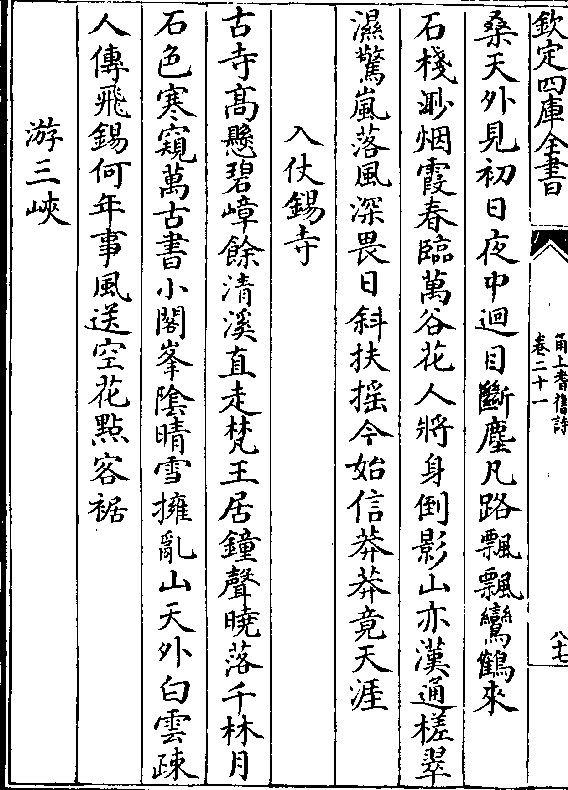 欽定四庫全書
甬上耆舊詩
卷二十一
八十七
桑天外見初日夜中迴目斷塵凡路飄飄鸞鶴來
石棧渺烟霞春臨萬谷花人將身倒影山亦漢通槎翠
濕驚嵐落風深畏日斜扶摇今始信莽莽竟天涯
入仗錫寺
古寺高懸碧嶂餘清溪直走梵王居鐘聲曉落千林月
石色寒窺萬古書小閣峯陰晴雪擁亂山天外白雲疎
人傳飛錫何年事風送空花點客裾
游三峽